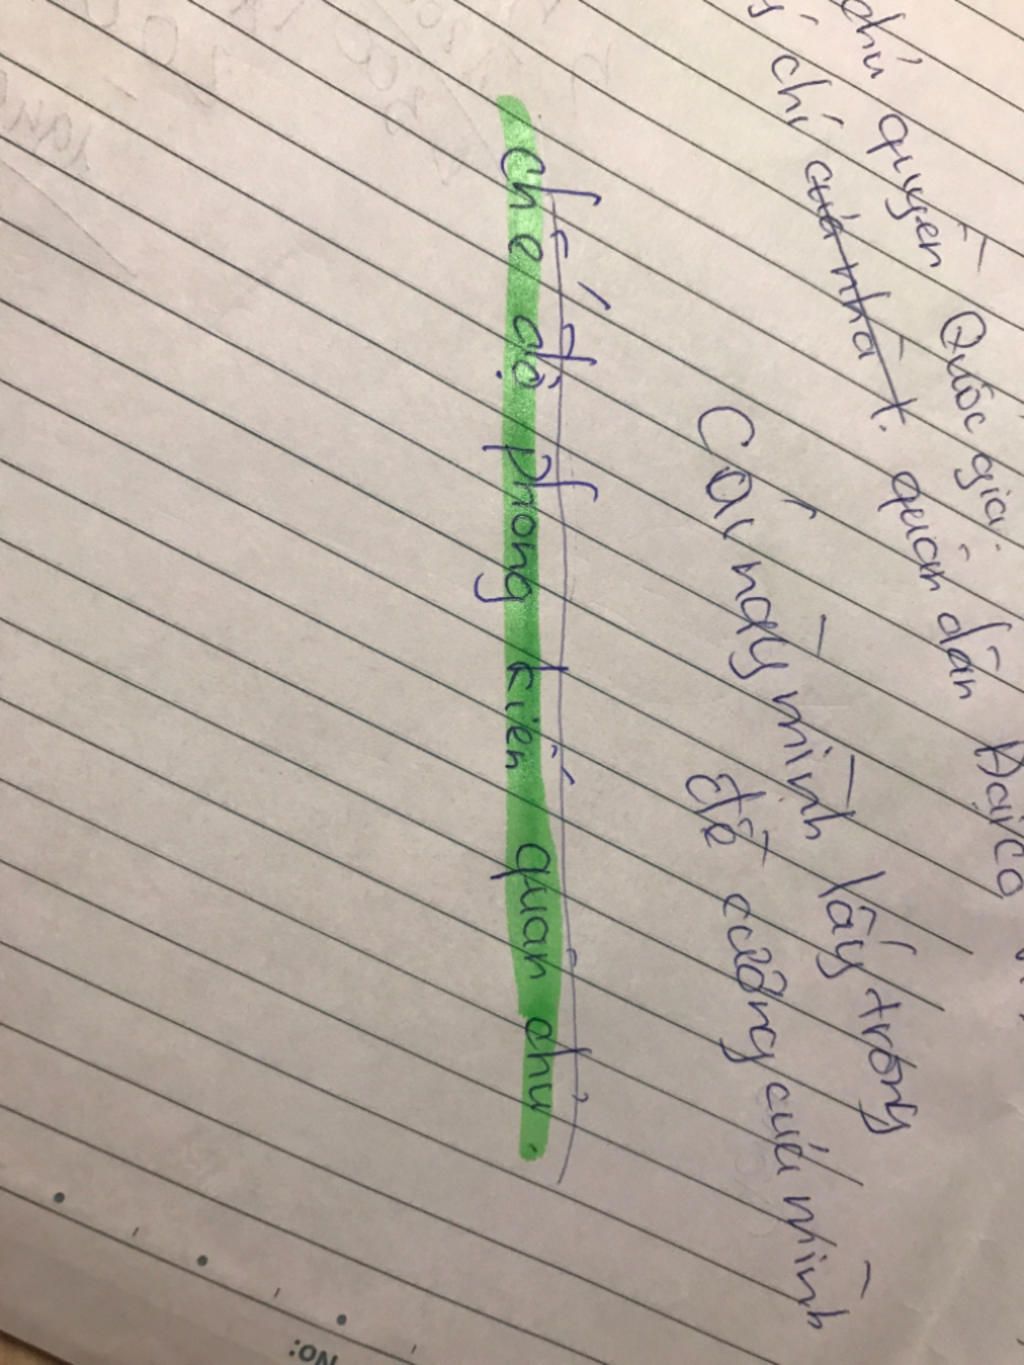 chủ quyền Quốc gia
chí của nhà t. quân dân Đại Cồ
Cái này mình lấy trong
đề cương của mình
chế độ phong kiến quân chủ.
No: